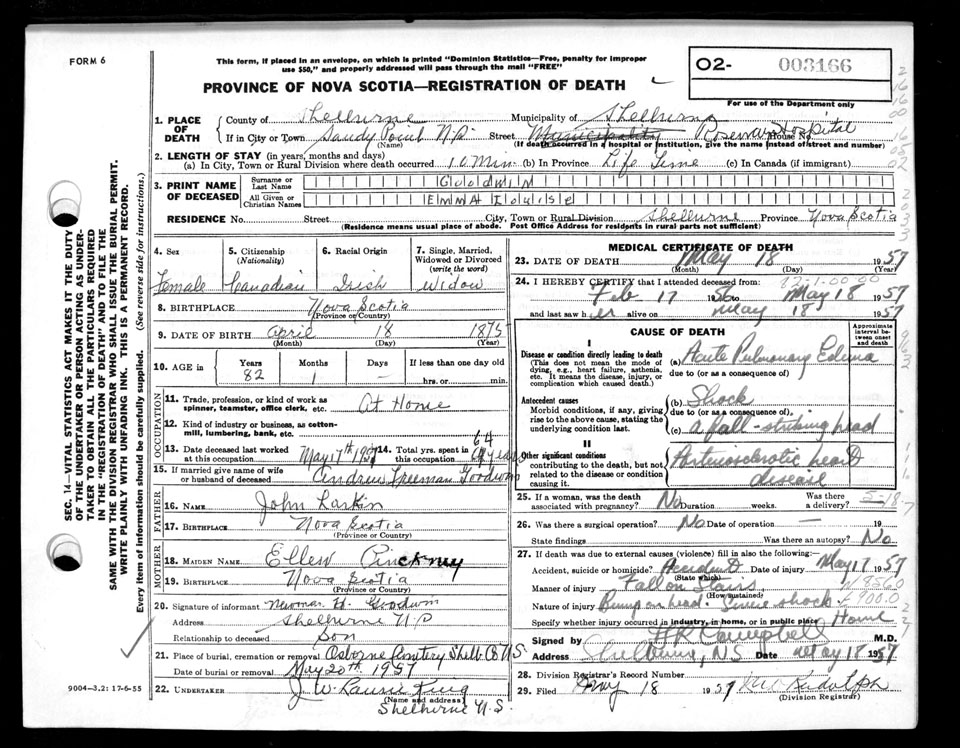 FORM 6
This form, if placed in an envelope, on which is printed "Dominion Statistics—Free, penalty for improper
use $50," and properly addressed will pass through the mail "FREE"
PROVINCE OF NOVA SCOTIA—REGISTRATION OF DEATH
O2- 003166
For use of the Department only
SEC. 14—VITAL STATISTICS ACT MAKES IT THE DUTY
OF THE UNDERTAKER OR PERSON ACTING AS UNDER-
TAKER TO OBTAIN ALL THE PARTICULARS REQUIRED
IN THE "REGISTRATION OF DEATH" AND TO FILE THE
SAME WITH THE DIVISION REGISTRAR WHO SHALL ISSUE THE BURIAL PERMIT.
WRITE PLAINLY WITH UNFADING INK. THIS IS A PERMANENT RECORD.
Every item of information should be carefully supplied. (See reverse side for instructions.)
1. PLACE OF DEATH
County of Shelburne Municipality of Shelburne
If in City or Town Sandy Point N.S. Street Municipality Roseway Hospital House No.
(Name) (If death occurred in a hospital or institution, give the name instead of street and number)
2. LENGTH OF STAY (in years, months and days)
(a) In City, Town or Rural Division where death occurred 10 Min. (b) In Province Life Time (c) In Canada (if immigrant)
3. PRINT NAME OF DECEASED
Surname or Last Name GOODWIN
All Given or Christian Names EMMA LOUISE
RESIDENCE No. Street City, Town or Rural Division Shelburne Province Nova Scotia
(Residence means usual place of abode. Post Office Address for residents in rural parts not sufficient)
4. Sex Female
5. Citizenship (Nationality) Canadian
6. Racial Origin Irish
7. Single, Married, Widowed or Divorced (write the word) Widow
8. BIRTHPLACE Nova Scotia
(Province or Country)
9. DATE OF BIRTH April 18 1875
(Month) (Day) (Year)
10. AGE in Years 82 Months 1 Days – If less than one day old hrs. or min.
OCCUPATION
11. Trade, profession, or kind of work as spinner, teamster, office clerk, etc. At Home
12. Kind of industry or business, as cotton-mill, lumbering, bank, etc.
13. Date deceased last worked at this occupation May 17th 1957 14. Total yrs. spent in this occupation 64 years
15. If married give name of wife or husband of deceased Andrew Freeman Goodwin
FATHER
16. NAME John Larkin
17. BIRTHPLACE Nova Scotia
(Province or Country)
MOTHER
18. MAIDEN NAME Ellen Pinckney
19. BIRTHPLACE Nova Scotia
(Province or Country)
20. Signature of informant Newman H. Goodwin
Address Shelburne N.S.
Relationship to deceased Son
21. Place of burial, cremation or removal Osborne Cemetery Shelb. Co N.S.
Date of burial or removal May 20th 1957
22. UNDERTAKER J. W. Laurie King
(Name and address)
Shelburne N.S.
9004-3.2: 17-6-55
MEDICAL CERTIFICATE OF DEATH
23. DATE OF DEATH May 18 1957
(Month) (Day) (Year)
24. I HEREBY CERTIFY that I attended deceased from:
Feb 17 56 to May 18 1957
and last saw her alive on May 18 1957
CAUSE OF DEATH
Approximate interval between onset and death
I
Disease or condition directly leading to death
(This does not mean the mode of dying, e.g., heart failure, asthenia, etc. It means the disease, injury, or complication which caused death.)
(a) Acute Pulmonary Edema
due to (or as a consequence of)
Antecedent causes
Morbid conditions, if any, giving rise to the above cause, stating the underlying condition last.
(b) Shock
due to (or as a consequence of)
(c) a fall - striking head
II
Other significant conditions
contributing to the death, but not related to the disease or condition causing it.
Arteriosclerotic heart
disease
25. If a woman, was the death associated with pregnancy? No Duration weeks. Was there a delivery?
5-18
26. Was there a surgical operation? No Date of operation — 19
State findings Was there an autopsy? No
27. If death was due to external causes (violence) fill in also the following:
Accident, suicide or homicide? Accident Date of injury May 17 1957
(State which)
Manner of injury Fall on Stairs
(How sustained)
Nature of injury Bump on head. Severe shock
Specify whether injury occurred in industry, in home, or in public place Home
Signed by H R Campbell M.D.
Address Shelburne, NS Date May 18 1957
28. Division Registrar's Record Number
29. Filed May 18 1957
(Division Registrar)